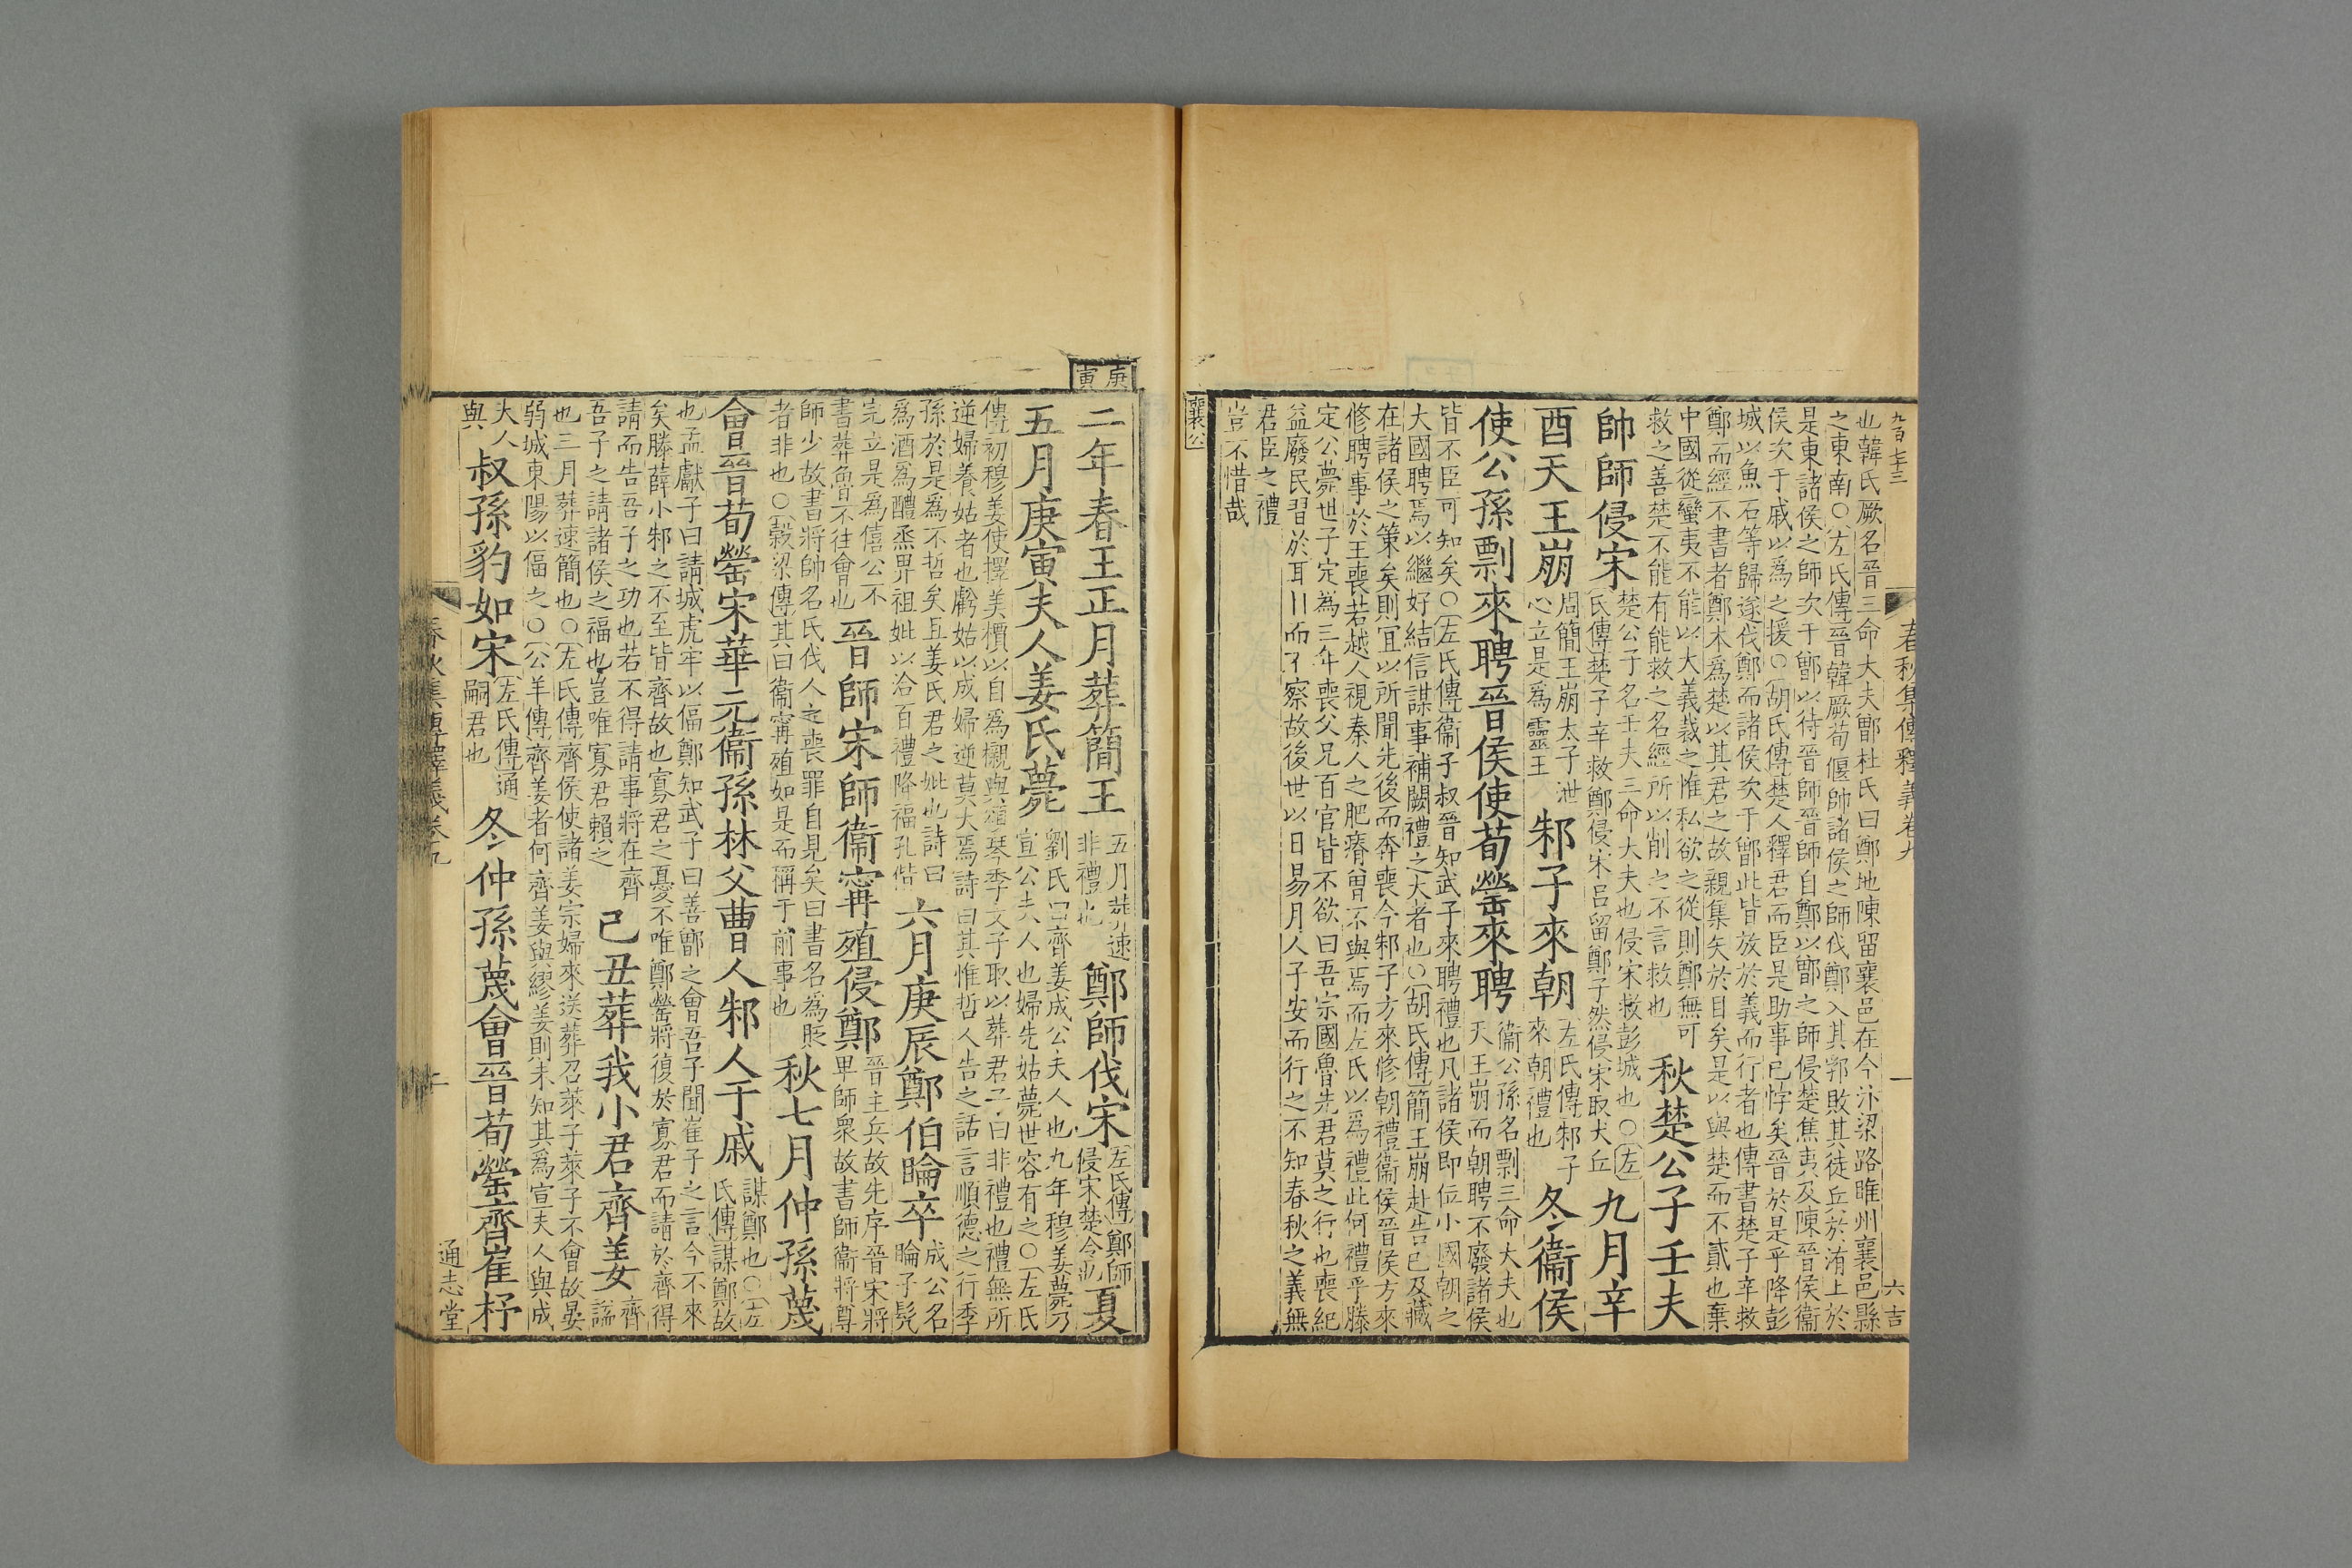 九百七十三
春秋集傳釋義卷九
一
六吉
也韓氏厥名晉三命大夫鄫杜氏曰鄭地陳留襄邑在今汴梁路睢州襄邑縣
之東南○左氏傳晉韓厥荀偃帥諸侯之師伐鄭入其郛敗其徒兵於洧上於
是東諸侯之師次于鄫以待晉師晉師自鄭以鄫之師侵楚焦夷及陳晉侯衞
侯次于戚以爲之援○胡氏傳楚人釋君而臣是助事已悖矣晉於是乎降彭
城以魚石等歸遂伐鄭而諸侯次于鄫此皆放於義而行者也傳書楚子辛救
鄭而經不書者鄭本爲楚以其君之故親集矢於目矣是以與楚而不貳也棄
中國從蠻夷不能以大義裁之惟私欲之從則鄭無可
救之善楚不能有能救之名經所以削之不言救也
秋楚公子壬夫
帥師侵宋
楚公子名壬夫三命大夫也侵宋救彭城也○左
氏傳楚子辛救鄭侵宋呂留鄭子然侵宋取犬丘
九月辛
酉天王崩
周簡王崩太子泄
心立是爲靈王
邾子來朝
左氏傳邾子
來朝禮也
冬衞侯
使公孫剽來聘晉侯使荀罃來聘
衞公孫名剽三命大夫也
天王崩而朝聘不廢諸侯
皆不臣可知矣○左氏傳衞子叔晉知武子來聘禮也凡諸侯即位小國朝之
大國聘焉以繼好結信謀事補闕禮之大者也○胡氏傳簡王崩赴告已及藏
在諸侯之策矣則宜以所聞先後而奔喪今邾子方來修朝禮衞侯晉侯方來
修聘事於王喪若越人視秦人之肥瘠曾不與焉而左氏以爲禮此何禮乎滕
定公薨世子定爲三年喪父兄百官皆不欲曰吾宗國魯先君莫之行也喪紀
益廢民習於耳目而不察故後世以日易月人子安而行之不知春秋之義無
君臣之禮
豈不惜哉
襄公
庚寅
二年春王正月葬簡王
五月葬速
非禮也
鄭師伐宋
左氏傳鄭師
侵宋楚令也
夏
五月庚寅夫人姜氏薨
劉氏曰齊姜成公夫人也九年穆姜薨乃
宣公夫人也婦先姑薨世容有之○左氏
傳初穆姜使擇美檟以自爲櫬與頌琴季文子取以葬君子曰非禮也禮無所
逆婦養姑者也虧姑以成婦逆莫大焉詩曰其惟哲人告之話言順德之行季
孫於是爲不哲矣且姜氏君之妣也詩曰
爲酒爲醴烝畀祖妣以洽百禮降福孔偕
六月庚辰鄭伯睔卒
成公名
睔子髡
完立是爲僖公不
書葬魯不往會也
晉師宋師衞寗殖侵鄭
晉主兵故先序晉宋將
卑師衆故書師衞將尊
師少故書將帥名氏伐人之喪罪自見矣曰書名爲貶
者非也○穀梁傳其曰衞寗殖如是而稱于前事也
秋七月仲孫蔑
會晉荀罃宋華元衞孫林父曹人邾人于戚
謀鄭也○左
氏傳謀鄭故
也孟獻子曰請城虎牢以偪鄭知武子曰善鄫之會吾子聞崔子之言今不來
矣滕薛小邾之不至皆齊故也寡君之憂不唯鄭罃將復於寡君而請於齊得
請而告吾子之功也若不得請事將在齊
吾子之請諸侯之福也豈唯寡君賴之
己丑葬我小君齊姜
齊
諡
也三月葬速簡也○左氏傳齊侯使諸姜宗婦來送葬召萊子萊子不會故晏
弱城東陽以偪之○公羊傳齊姜者何齊姜與繆姜則未知其爲宣夫人與成
夫人
與
叔孫豹如宋
左氏傳通
嗣君也
冬仲孫蔑會晉荀罃齊崔杼
春秋集傳釋義卷九
二
通志堂